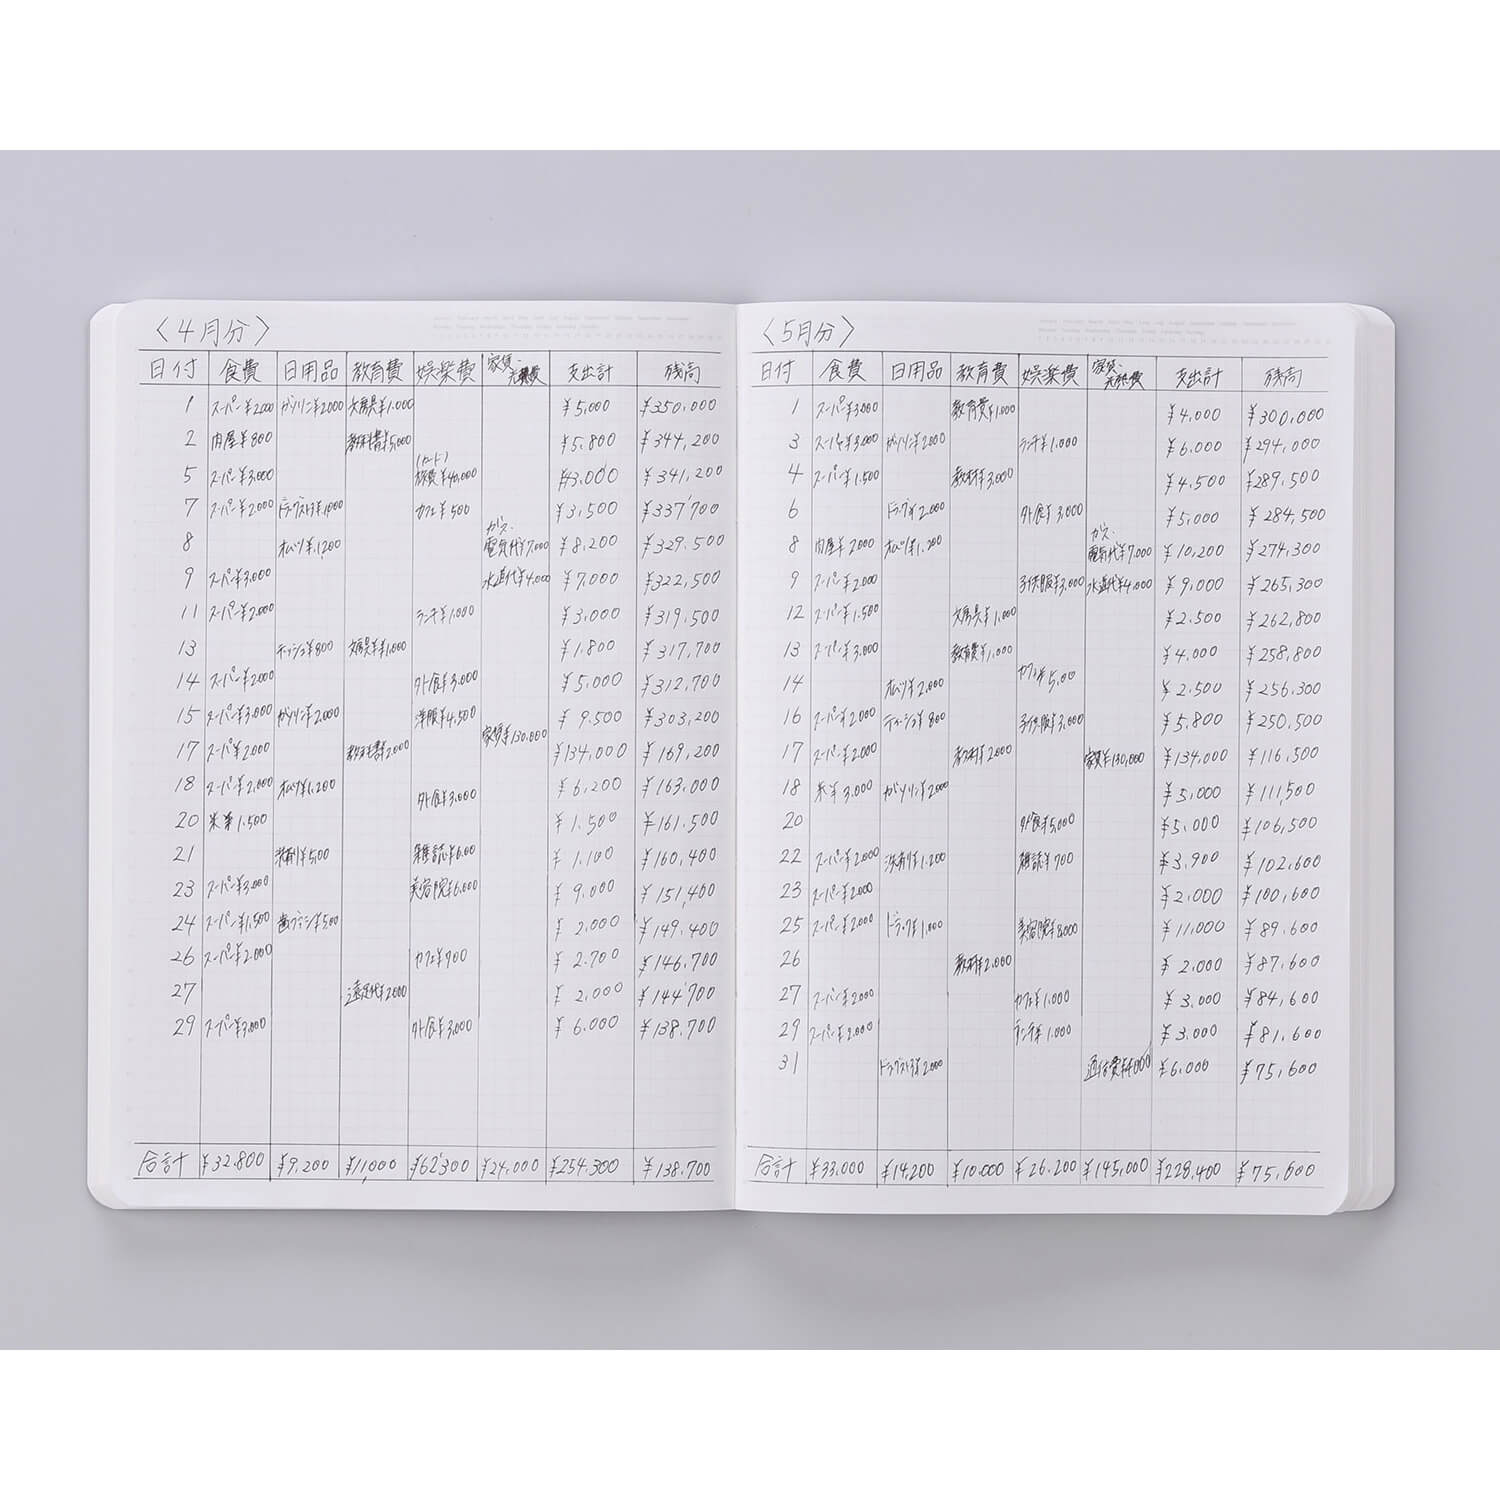 〈4月分〉
日付 食費 日用品 教育費 娯楽費 家賃・光熱費 支出計 残高
1 スーパー¥2000 ガソリン¥2000 文房具¥1.000 ¥5,000 ¥350,000
2 肉屋¥800 教科書¥5,000 ¥5.800 ¥344,200
5 スーパー¥3,000 (カード)旅費¥40,000 ¥3,000 ¥341,200
7 スーパー¥2.000 ドラッグストア¥1,000 カフェ¥500 ¥3,500 ¥337'700
8 オムツ¥1,200 ガス・電気代¥7,000 ¥8,200 ¥329.500
9 スーパー¥3,000 水道代¥4,000 ¥7,000 ¥322,500
11 スーパー¥2.000 ランチ¥1.000 ¥3,000 ¥319,500
13 ティッシュ¥800 文房具¥1,000 ¥1.800 ¥317,700
14 スーパー¥2000 外食¥3.000 ¥5,000 ¥312,700
15 スーパー¥3,000 ガソリン¥2,000 洋服¥4,500 ¥9.500 ¥303,200
17 スーパー¥2000 教科書¥2000 家賃¥130,000 ¥134,000 ¥169,200
18 スーパー¥2,000 オムツ¥1,200 外食¥3,000 ¥6,200 ¥163,000
20 米¥1.500 ¥1.500 ¥161.500
21 洗剤¥500 雑誌¥600 ¥1,100 ¥160,400
23 スーパー¥3,000 美容院¥6,000 ¥9,000 ¥151,400
24 スーパー¥1,500 歯ブラシ¥500 ¥2,000 ¥149,400
26 スーパー¥2.000 カフェ¥700 ¥2.700 ¥146,700
27 遠足代¥2000 ¥2,000 ¥144'700
29 スーパー¥3,000 外食¥3,000 ¥6.000 ¥138.700
合計 ¥32.800 ¥9,200 ¥11,000 ¥62'300 ¥24,000 ¥254.300 ¥138.700
〈5月分〉
日付 食費 日用品 教育費 娯楽費 家賃・光熱費 支出計 残高
1 スーパー¥3000 教育費¥1,000 ¥4.000 ¥300,000
3 スーパー¥3,000 ガソリン¥2,000 ランチ¥1.000 ¥6.000 ¥294,000
4 スーパー¥1.500 教材¥3,000 ¥4,500 ¥289,500
6 ドラッグ¥2.000 外食¥3,000 ¥5,000 ¥284,500
8 肉屋¥2000 オムツ¥1.200 ガス・電気代¥7,000 ¥10,200 ¥274,300
9 スーパー¥2.000 子供服¥3,000 水道代¥4,000 ¥9,000 ¥265,300
12 スーパー¥1.500 文房具¥1,000 ¥2.500 ¥262,800
13 スーパー¥3,000 教育費¥1,000 ¥4,000 ¥258,800
14 オムツ¥2.000 カフェ¥5,00 ¥2.500 ¥256,300
16 スーパー¥2000 ティッシュ¥800 子供服¥3,000 ¥5.800 ¥250,500
17 スーパー¥2.000 教材¥2000 家賃¥130,000 ¥134,000 ¥116,500
18 米¥3,000 ガソリン¥2000 ¥5,000 ¥111,500
20 外食¥5,000 ¥5,000 ¥106,500
22 スーパー¥2.000 洗剤¥1.200 雑誌¥700 ¥3,900 ¥102,600
23 スーパー¥2000 ¥2,000 ¥100,600
25 スーパー¥2.000 ドラッグ¥1,000 美容院¥8,000 ¥11,000 ¥89,600
26 教材¥2.000 ¥2,000 ¥87,600
27 スーパー¥2000 カフェ¥1,000 ¥3,000 ¥84,600
29 スーパー¥2.000 ランチ¥1.000 ¥3.000 ¥81,600
31 ドラッグストア¥2000 通信費¥4000 ¥6,000 ¥75,600
合計 ¥33.000 ¥14,200 ¥10.000 ¥26.200 ¥145,000 ¥228,400 ¥75,600